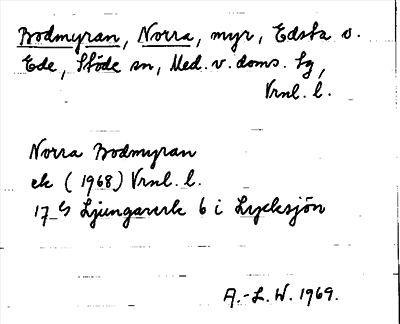 Bodmyran, Norra, myr, Edsta o.
Ede, Stöde sn, Med. v. doms. tg,
Vrnl. l.
Norra Bodmyran
ek (1968) Vrnl. l.
17 Ljungaverk 6 i Lycksjön
A.-L. W. 1969.